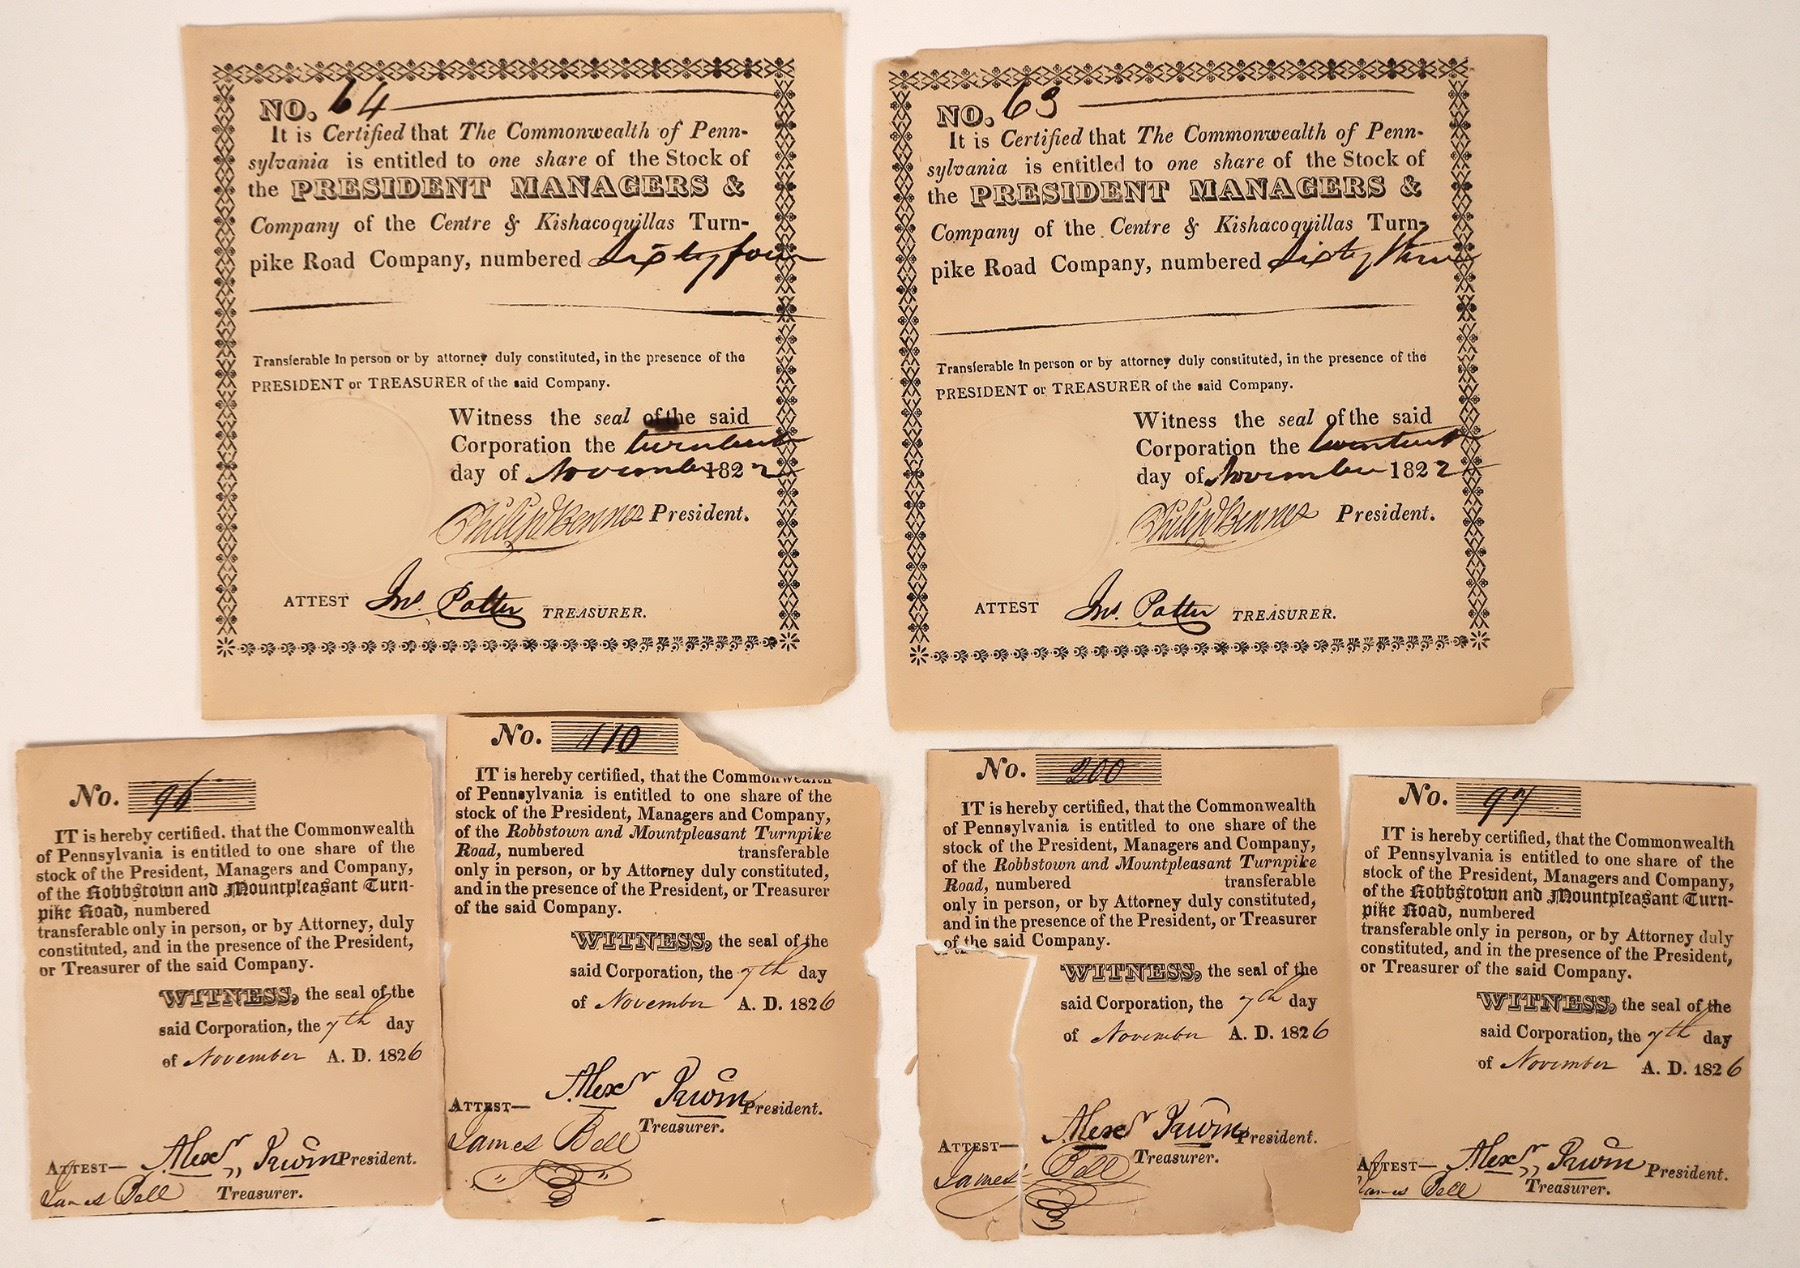 NO. 64
It is Certified that The Commonwealth of Penn-
sylvania is entitled to one share of the Stock of
the PRESIDENT MANAGERS &
Company of the Centre & Kishacoquillas Turn-
pike Road Company, numbered Sixty four
Transferable in person or by attorney duly constituted, in the presence of the
PRESIDENT or TREASURER of the said Company.
Witness the seal of the said
Corporation the
day of November 1822
Philip Benner President.
ATTEST Jno. Potter TREASURER.
NO. 63
It is Certified that The Commonwealth of Penn-
sylvania is entitled to one share of the Stock of
the PRESIDENT MANAGERS &
Company of the Centre & Kishacoquillas Turn-
pike Road Company, numbered Sixty three
Transferable in person or by attorney duly constituted, in the presence of the
PRESIDENT or TREASURER of the said Company.
Witness the seal of the said
Corporation the
day of November 1822
Philip Benner President.
ATTEST Jno. Potter TREASURER.
No. 96
IT is hereby certified, that the Commonwealth
of Pennsylvania is entitled to one share of the
stock of the President, Managers and Company,
of the Robbstown and Mountpleasant Turn-
pike Road, numbered
transferable only in person, or by Attorney, duly
constituted, and in the presence of the President,
or Treasurer of the said Company.
WITNESS, the seal of the
said Corporation, the 7th day
of November A. D. 1826
ATTEST— Alexr Irwin President.
James Bell Treasurer.
No. 110
IT is hereby certified, that the Commonwealth
of Pennsylvania is entitled to one share of the
stock of the President, Managers and Company,
of the Robbstown and Mountpleasant Turnpike
Road, numbered transferable
only in person, or by Attorney duly constituted,
and in the presence of the President, or Treasurer
of the said Company.
WITNESS, the seal of the
said Corporation, the 7th day
of November A. D. 1826
ATTEST— Alexr Irwin President.
James Bell Treasurer.
No. 200
IT is hereby certified, that the Commonwealth
of Pennsylvania is entitled to one share of the
stock of the President, Managers and Company,
of the Robbstown and Mountpleasant Turnpike
Road, numbered transferable
only in person, or by Attorney duly constituted,
and in the presence of the President, or Treasurer
of the said Company.
WITNESS, the seal of the
said Corporation, the 7th day
of November A. D. 1826
ATTEST— Alexr Irwin President.
James Bell Treasurer.
No. 97
IT is hereby certified, that the Commonwealth
of Pennsylvania is entitled to one share of the
stock of the President, Managers and Company,
of the Robbstown and Mountpleasant Turn-
pike Road, numbered
transferable only in person, or by Attorney duly
constituted, and in the presence of the President,
or Treasurer of the said Company.
WITNESS, the seal of the
said Corporation, the 7th day
of November A. D. 1826
ATTEST— Alexr Irwin President.
James Bell Treasurer.